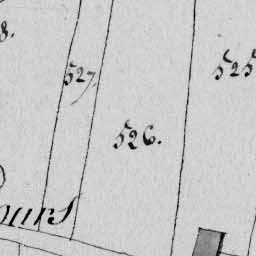 8.
527.
526.
525
ours